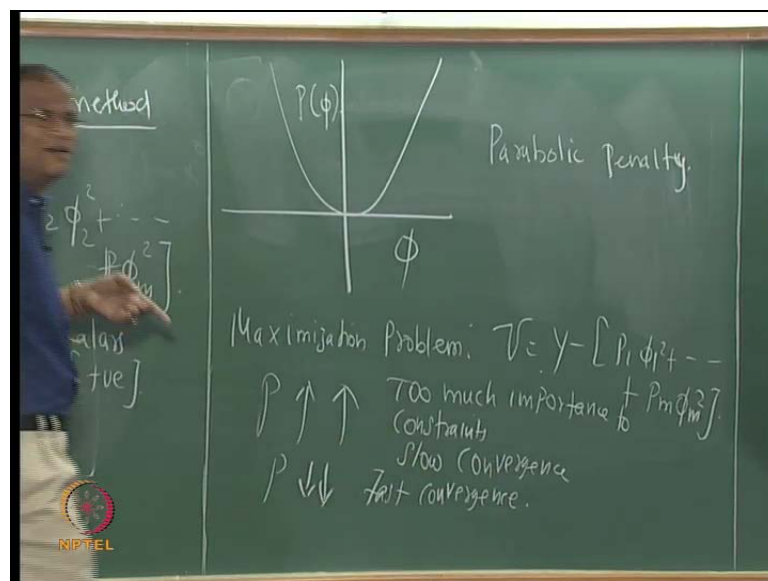 method
2 φ₂² + ...
+ Pφₘ²].
alars
+ve].
P(φ)
φ
Parabolic Penalty.
Maximization Problem: V = Y − [P₁ φ₁² + ...
+ Pₘφₘ²].
P ↑ ↑ Too much importance to
constraints
Slow convergence
P ↓↓ Fast convergence.
NPTEL